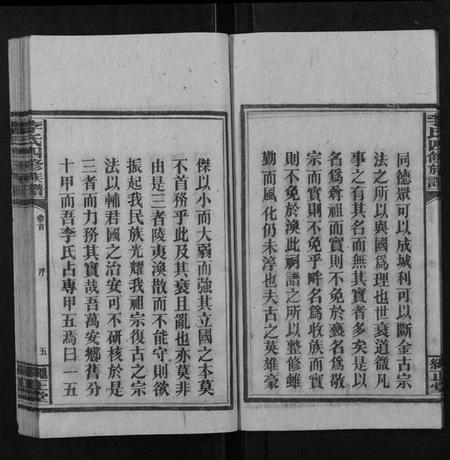 同德眾可以成城利可以斷金古宗
法之所以與國為理也世衰道微凡
事之有其名而無其實者多矣是以
名為尊祖而實則不免於褻名為敬
宗而實則不免乎畔名為收族而實
則不免於渙此祠譜之所以整修雖
勤而風化仍未淳也夫古之英雄豪
李氏四修族譜
傑以小而大弱而強其立國之本莫
不首務乎此及其衰且亂也亦莫非
由是三者陵夷渙散而不能守則欲
振起我民族光耀我祖宗復古之宗
法以輔君國之治安可不研核於是
三者而力務其實哉吾萬安鄉舊分
十甲而吾李氏占專甲五焉曰一五
李氏四修族譜
卷首
序
五